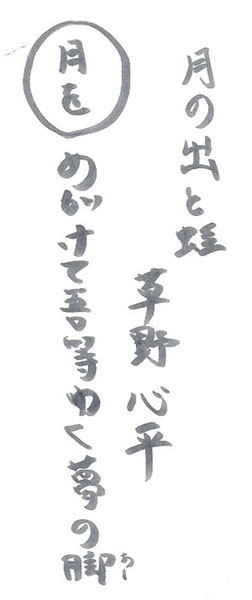 月の出と蛙
草野心平
月をめがけて吾等ゆく夢の脚
あし